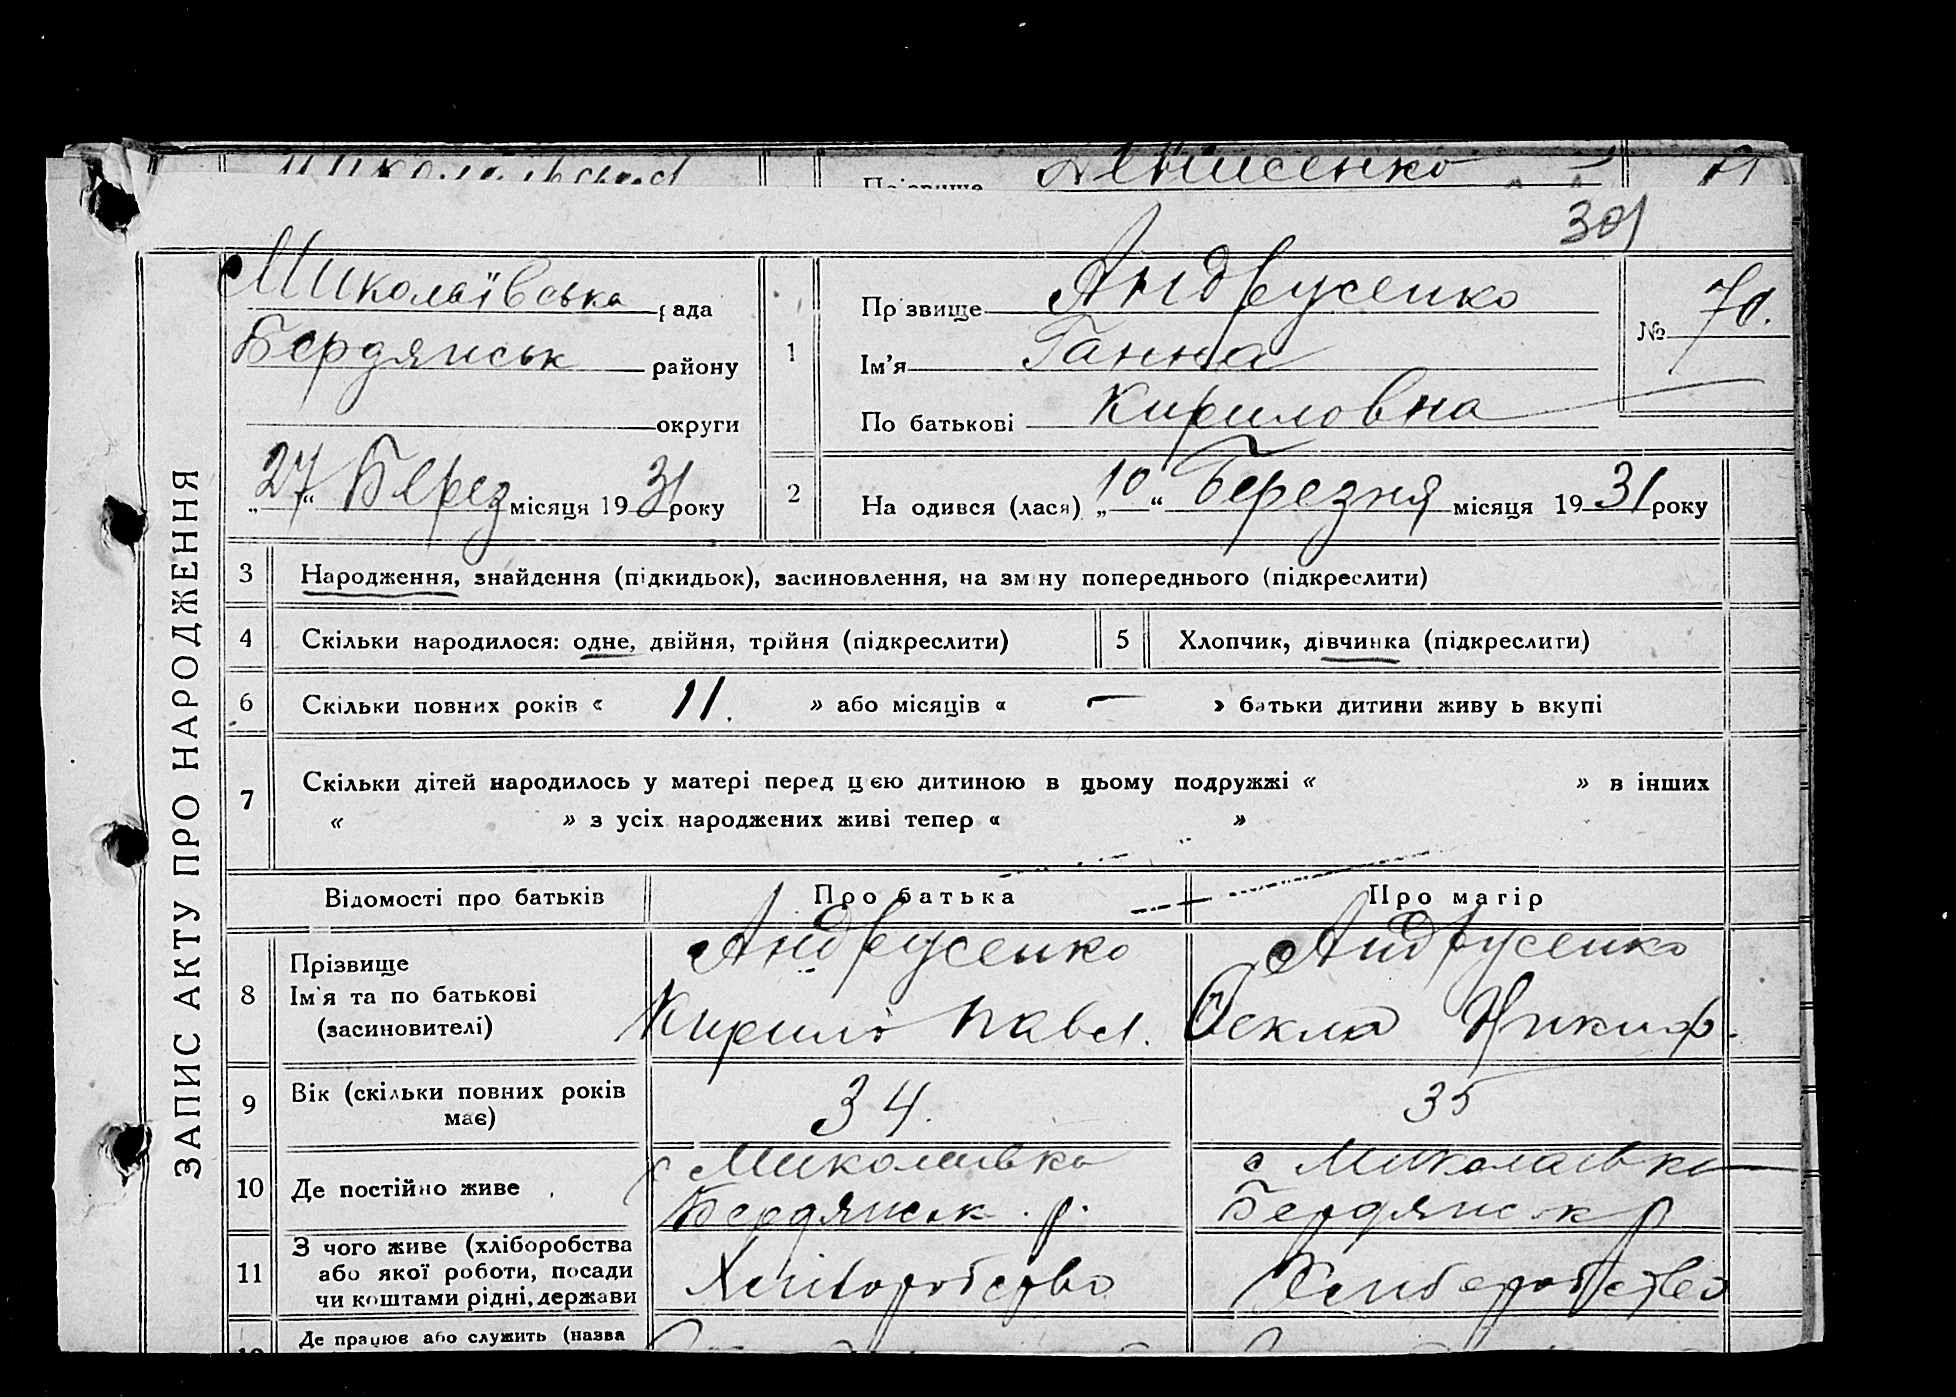 Денисенко
301
ЗАПИС АКТУ ПРО НАРОДЖЕННЯ
Миколаївська рада
Бердянськ району
округи
„27“ Берез місяця 1931 року
1
Прізвище Андрусенко
Ім'я Ганна
По батькові Кириловна
№ 70.
2
На одився (лася) „10“ Березня місяця 1931 року
3 Народження, знайдення (підкидьок), засиновлення, на зміну попереднього (підкреслити)
4 Скільки народилося: одне, двійня, трійня (підкреслити)
5 Хлопчик, дівчинка (підкреслити)
6 Скільки повних років « 11. » або місяців « — » батьки дитини живу ь вкупі
7 Скільки дітей народилось у матері перед цією дитиною в цьому подружжі « » в інших
« » з усіх народжених живі тепер « »
Відомості про батьків Про батька Про матір
8 Прізвище Андрусенко Андрусенко
Ім'я та по батькові Кирило Павл. Текла Никиф.
(засиновителі)
9 Вік (скільки повних років 34. 35
має)
10 Де постійно живе с Миколаивка с Миколаивка
Бердянськ р. Бердянськ р
11 З чого живе (хліборобства
або якої роботи, посади Хліборобство Хліборобство
чи коштами рідні, держави
Де працює або служить (назва